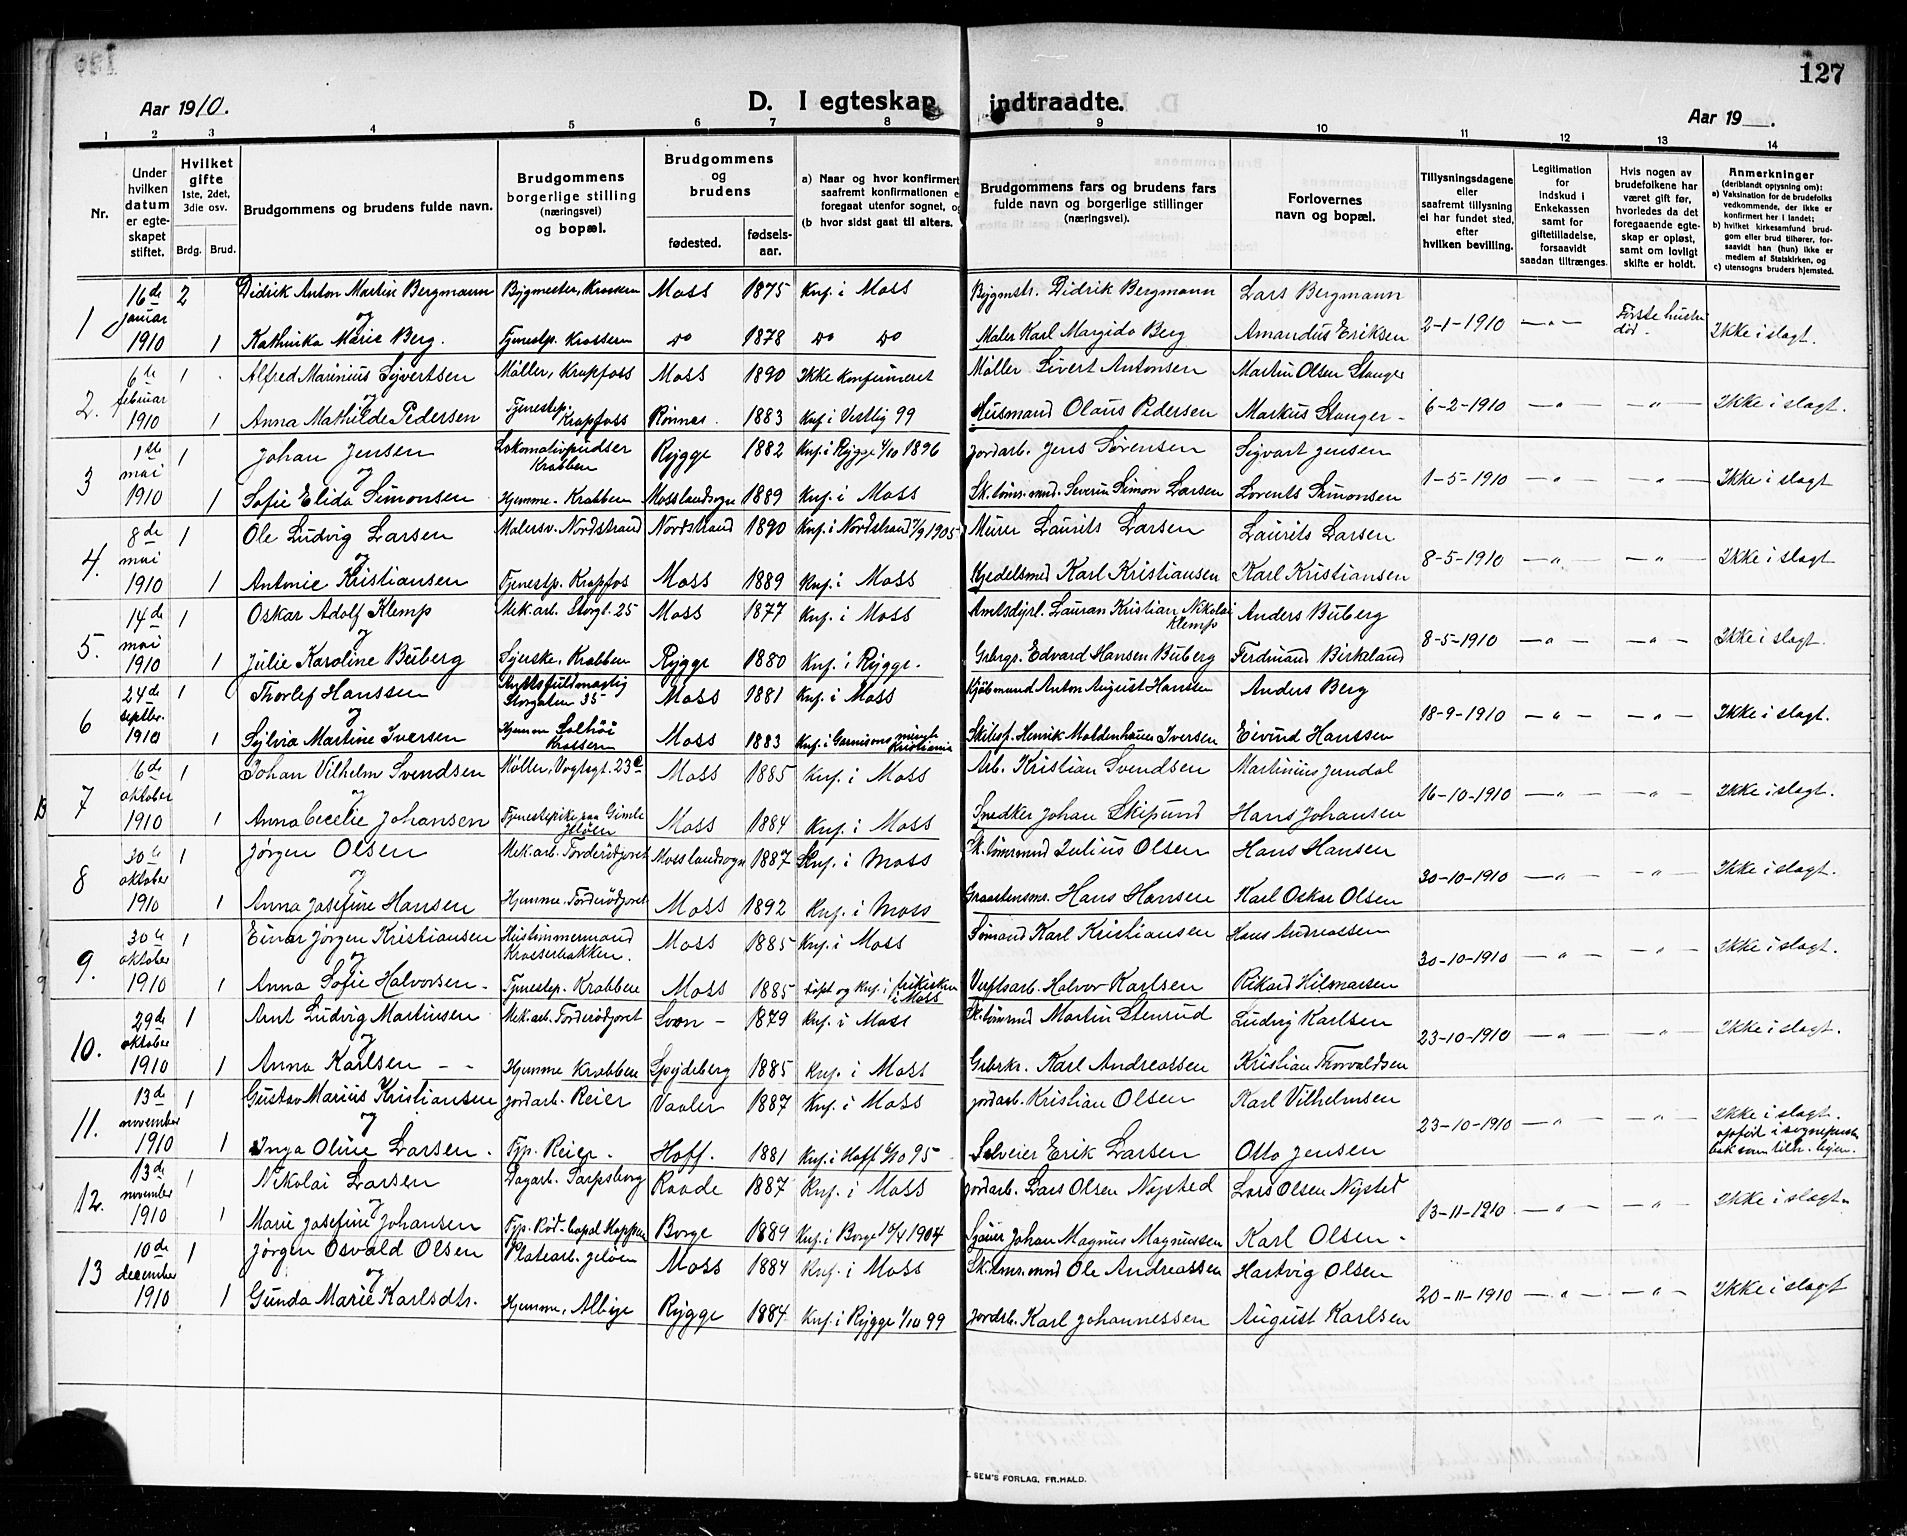 127
Aar 1910.
D. I egteskap indtraadte.
Aar 19__.
1 2 3 4 5 6 7 8 9 10 11 12 13 14
Nr.
Under hvilken datum er egteskapet stiftet.
Hvilket gifte 1ste, 2det, 3die osv.
Brdg. Brud.
Brudgommens og brudens fulde navn.
Brudgommens borgerlige stilling (næringsvei) og bopæl.
Brudgommens og brudens
fødested. fødsels-aar.
a) Naar og hvor konfirmert saafremt konfirmationen e foregaat utenfor sognet, og
(b hvor sidst gaat til alters.
Brudgommens fars og brudens fars fulde navn og borgerlige stillinger (næringsvei).
Forlovernes navn og bopæl.
Tillysningsdagene eller saafremt tillysning ei har fundet sted, efter hvilken bevilling.
Legitimation for indskud i Enkekassen samt for giftetilladelse, forsaavidt saadan tiltrænges.
Hvis nogen av brudefolkene har været gift før, hvorledes da det foregaaende egteskap er opløst, samt om lovligt skifte er holdt.
Anmerkninger (deriblandt opjysning om): a) Vaksination for de brudefolks vedkommende, der ikke er konfirmert her i landet; b) hvilket kirkesamfund brudgom eller brud tilhører, forsaavidt han (hun) ikke er medlem af Statskirken, og c) utensogns bruders hjemsted.
1 16de januar 1910 2 Didrik Anton Martin Bergmann Bygmester, Krossern Moss 1875 Knf. i Moss Bygmstr. Didrik Bergmann Lars Bergmann 2-1-1910 — " — Første hustru død. Ikke i slagt.
og
1 Kathinka Marie Berg. Tjenestep. Krossern do 1878 do do Maler Karl Margido Berg Amandus Eriksen
2. 6te februar 1910 1 Alfred Marinius Syvertsen Møller, Krapfoss Moss 1890 Ikke konfirmeret Møller Sivert Antonsen Martin Olsen Stanger 6-2-1910 — " — — " — Ikke i slagt.
og
1 Anna Mathilde Pedersen Tjenestep. Krapfoss Rømnes. 1883 Knf i Vestby 99 Husmand Olaus Pedersen Markus Stanger -
3 1ste mai 1910 1 Johan Jensen Lokomotivpudser Krabben Rygge 1882 Knf. i Rygge 4/10 1896 Jordarb. Jens Sørensen Sigvart Jensen 1-5-1910 — " — — " — Ikke i slagt
og
1 Sofie Elida Simonsen Hjemme - Krabben Mosslandsogn 1889 Knf. i Moss Sk.tømr.md. Severin Simon Larsen Lorents Simonsen
4. 8de mai 1910 1 Ole Ludvig Larsen Malersv. Nordstrand Nordstrand 1890 Knf. i Nordstrand 7/9 1905 Murer Laurits Larsen Laurits Larsen 8-5-1910 — " — — " — Ikke i slagt
og
1 Antonie Kristiansen Tjenestp. Krapfos Moss 1889 Knf. i Moss Kjedelsmed Karl Kristiansen Karl Kristiansen
5. 14de mai 1910 1 Oskar Adolf Klemp Mek.arb. Storgt. 25 Moss 1877 Knf. i Moss Amtsdyrl. Lauran Kristian Nikolai Klemp Anders Buberg 8-5-1910 — " — — " — Ikke i slagt.
og
1 Julie Karoline Buberg Syerske, Krabben Rygge 1880 Knf. i Rygge. Grbrgs. Edvard Hansen Buberg Ferdinand Birkeland
6 24de septbr. 1910 1 Thorlef Hanssen Amtsfuldmægtig Storgaten 35 Moss 1881 Knf. i Moss Kjøbmand Anton August Hanssen Anders Berg 18-9-1910 — " — — " — Ikke i slagt.
og
1 Sylvia Martine Iversen Hjemme Krossern Moss 1883 Knf. i Garnisons mingh Kristiania Skibsf. Henrik Moldenhauer Iversen Eivind Hanssen
7 6de oktober 1910 1 Johan Vilhelm Svendsen Møller, Vogtsgt. 23 Moss 1885 Knf. i Moss Arb. Kristian Svendsen Martinius Jerndal 16-10-1910 — " — — " — Ikke i slagt.
og
1 Anna Cecelie Johansen Tjenestepike paa Gimle Jeløen Moss 1884 Knf. i Moss Snedker Johan Skipsund Hans Johansen
8 30te oktober 1910 1 Jørgen Olsen Mek.arb. Torderødjoret Mosslandsogn 1887 Knf. i Moss Sk.tømrmnd Julius Olsen Hans Hansen 30-10-1910 — " — — " — Ikke i slagt.
og
1 Anna Josefine Hansen Hjemme. Torderødjoret Moss 1892 Knf. i Moss Graastensms. Hans Hansen Karl Oskar Olsen
9. 30te oktober 1910 1 Einar Jørgen Kristiansen Hustømmermand Kroeserbakken. Moss 1885 Knf. i Moss Sømand Karl Kristiansen Hans Andreassen 30-10-1910 — " — — " — Ikke i slagt.
og
1 Anna Sofie Halvorsen - Tjenestep. Krabben Moss 1885 døpt og Knf. i frikirken i Moss Verftsarb. Halvor Karlsen Rikard Hilmarsen
10. 29de oktober 1910 1 Arnt Ludvig Martinsen Mek.arb. Torderødjoret 1879 Knf. i Moss Sk.tømrmd Martin Stenrud Ludvig Karlsen 23-10-1910 — " — — " — Ikke i slagt.
og
1 Anna Karlsen - - Hjemme Krabben Spydeberg 1885 Knf. i Moss Grbrkr. Karl Andreassen Kristian Thorvaldsen
11. 13de november 1910 1 Gustav Marius Kristiansen Jordarb. Reier Vaaler 1887 Knf. i Moss Jordarb. Kristian Olsen Karl Vilhelmsen 23-10-1910 — " — — " — Ikke i slagt.
og
1 Inga Oline Larsen. Typ. Reier - Hoff. 1881 Knf. i Hoff 6/10 95 - Selveier Erik Larsen Otto Jensen
12. 13de november 1910 1 Nikolai Larsen Dagarb. Sarpsborg Raade 1887 Knf. i Moss Jordarb. Lars Olsen Nysted Lars Olsen Nysted 13-11-1910 — " — — " — Ikke i slagt.
og
1 Marie Josefine Johansen Borge 1889 Knf. i Borge 10/4 1904 Sjauer Johan Magnus Magnussen Karl Olsen -
13 10de december 1910 1 Jørgen Osvald Olsen Platearb. Jeløen Moss 1884 Knf. i Moss Sk.tmr.mnd Ole Andreassen Hartvig Olsen 20-11-1910 — " — — " — Ikke i slagt
og
1 Gunda Marie Karlsdtr. Hjemme, Albye Rygge 1884 Knf. i Rygge 1/10 99 Jordarb. Karl Johannessen August Karlsen
E. SEM'S FORLAG, FR.HALD.